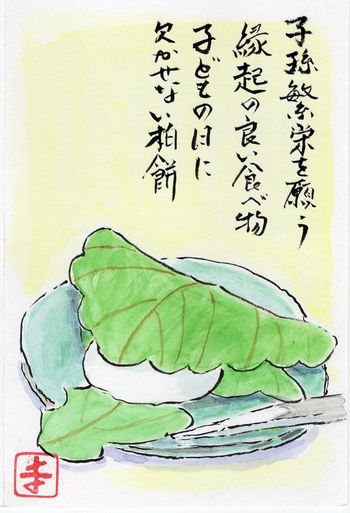 子孫繁栄を願う
縁起の良い食べ物
子どもの日に
欠かせない柏餅